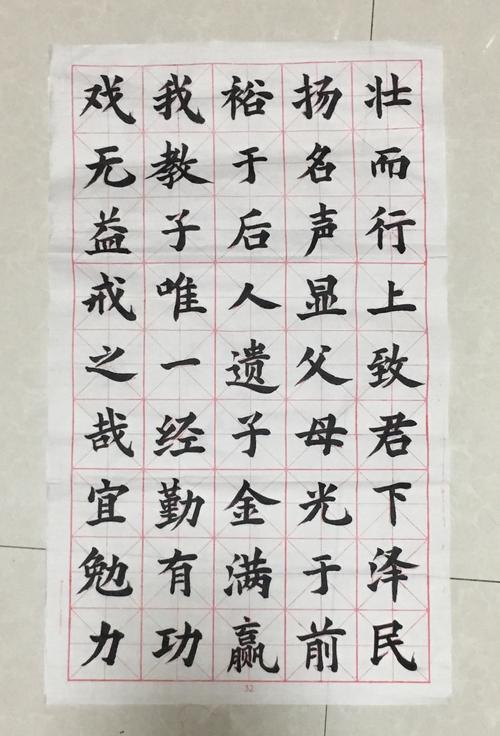 壮而行上致君下泽民
扬名声显父母光于前
裕于后人遗子金满赢
我教子唯一经勤有功
戏无益戒之哉宜勉力
32